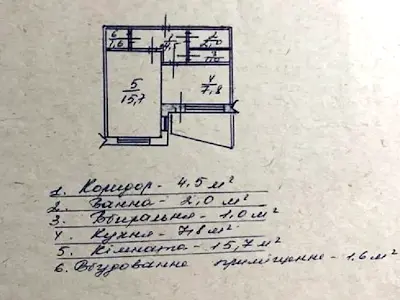 6
1,6
1
4,5
2
2,0
3
1,0
5
15,7
4
7,8
1. Коридор - 4,5 м²
2. Ванна - 2,0 м²
3. Вбиральня - 1,0 м²
4. Кухня - 7,8 м²
5. Кімната - 15,7 м²
6. Вбудованне приміщення - 1.6 м²